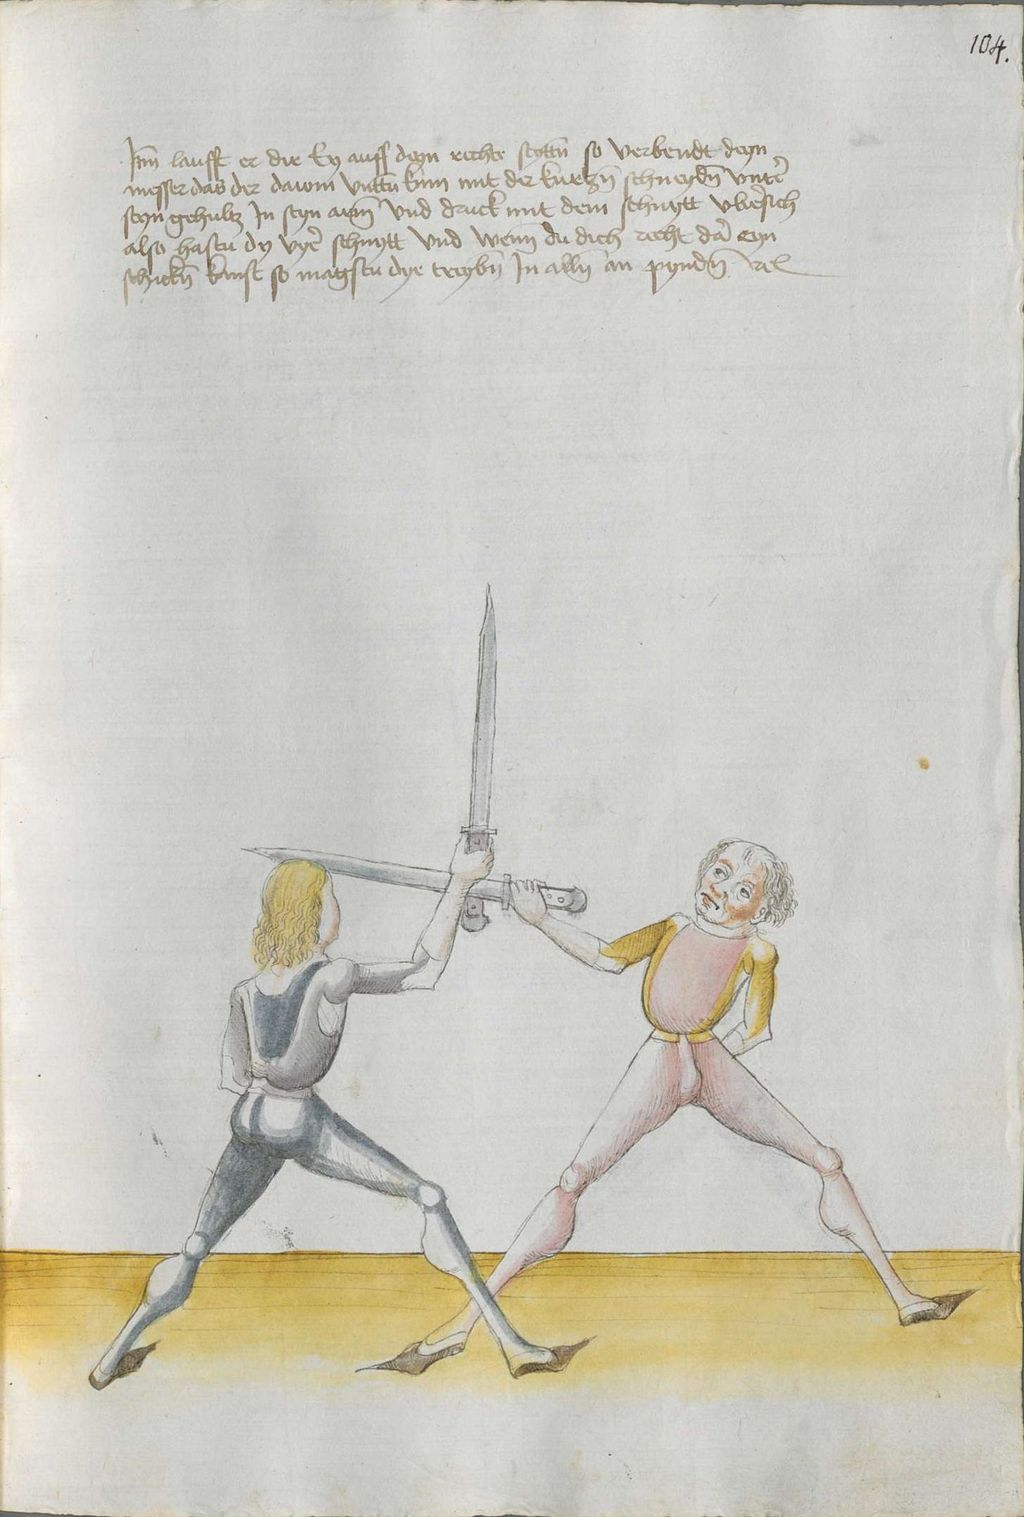 104.
Itm̄ laufft er dir Ey auff deyn rechte seyttñ so verbendt deyn
messer das der dawm vnttñ kum mit der kurtzñ schneydñ vnter
seyn gehultz In seyn arm̄ vnd druck mit dem schnytt vbersich
also hastu dy vyer schnytt vnd wenn̄ du dich recht dar eyn
schickñ kanst so magstu dye treybñ In allñ an pyndñ